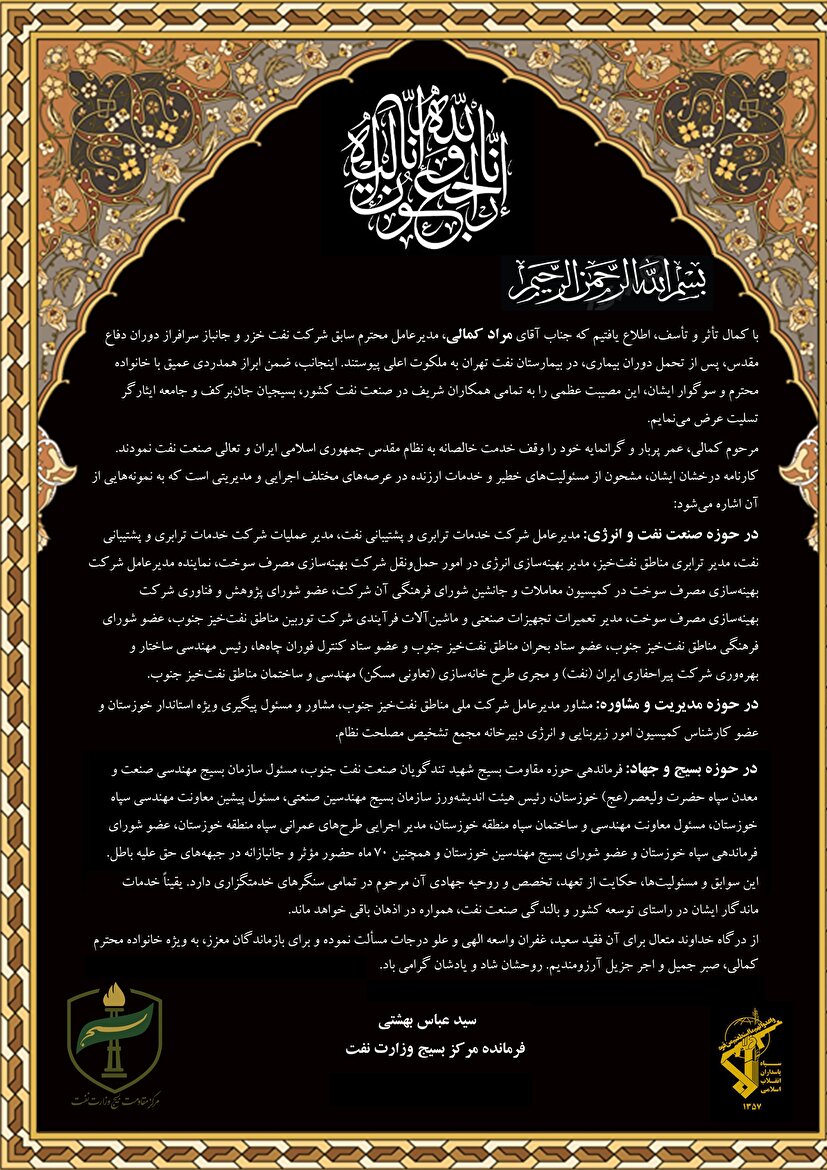 إنا لله وإنا إليه راجعون
بسم الله الرحمن الرحیم
با کمال تأثر و تأسف، اطلاع یافتیم که جناب آقای مراد کمالی، مدیرعامل محترم سابق شرکت نفت خزر و جانباز سرافراز دوران دفاع
مقدس، پس از تحمل دوران بیماری، در بیمارستان نفت تهران به ملکوت اعلی پیوستند. اینجانب، ضمن ابراز همدردی عمیق با خانواده
محترم و سوگوار ایشان، این مصیبت عظمی را به تمامی همکاران شریف در صنعت نفت کشور، بسیجیان جان‌برکف و جامعه ایثارگر
تسلیت عرض می‌نمایم.
مرحوم کمالی، عمر پربار و گرانمایه خود را وقف خدمت خالصانه به نظام مقدس جمهوری اسلامی ایران و تعالی صنعت نفت نمودند.
کارنامه درخشان ایشان، مشحون از مسئولیت‌های خطیر و خدمات ارزنده در عرصه‌های مختلف اجرایی و مدیریتی است که به نمونه‌هایی از
آن اشاره می‌شود:
در حوزه صنعت نفت و انرژی: مدیرعامل شرکت خدمات ترابری و پشتیبانی نفت، مدیر عملیات شرکت خدمات ترابری و پشتیبانی
نفت، مدیر ترابری مناطق نفت‌خیز، مدیر بهینه‌سازی انرژی در امور حمل‌ونقل شرکت بهینه‌سازی مصرف سوخت، نماینده مدیرعامل شرکت
بهینه‌سازی مصرف سوخت در کمیسیون معاملات و جانشین شورای فرهنگی آن شرکت، عضو شورای پژوهش و فناوری شرکت
بهینه‌سازی مصرف سوخت، مدیر تعمیرات تجهیزات صنعتی و ماشین‌آلات فرآیندی شرکت توربین مناطق نفت‌خیز جنوب، عضو شورای
فرهنگی مناطق نفت‌خیز جنوب، عضو ستاد بحران مناطق نفت‌خیز جنوب و عضو ستاد کنترل فوران چاه‌ها، رئیس مهندسی ساختار و
بهره‌وری شرکت پیراحفاری ایران (نفت) و مجری طرح خانه‌سازی (تعاونی مسکن) مهندسی و ساختمان مناطق نفت‌خیز جنوب.
در حوزه مدیریت و مشاوره: مشاور مدیرعامل شرکت ملی مناطق نفت‌خیز جنوب، مشاور و مسئول پیگیری ویژه استاندار خوزستان و
عضو کارشناس کمیسیون امور زیربنایی و انرژی دبیرخانه مجمع تشخیص مصلحت نظام.
در حوزه بسیج و جهاد: فرماندهی حوزه مقاومت بسیج شهید تندگویان صنعت نفت جنوب، مسئول سازمان بسیج مهندسی صنعت و
معدن سپاه حضرت ولیعصر(عج) خوزستان، رئیس هیئت اندیشه‌ورز سازمان بسیج مهندسین صنعتی، مسئول پیشین معاونت مهندسی سپاه
خوزستان، مسئول معاونت مهندسی و ساختمان سپاه منطقه خوزستان، مدیر اجرایی طرح‌های عمرانی سپاه منطقه خوزستان، عضو شورای
فرماندهی سپاه خوزستان و عضو شورای بسیج مهندسین خوزستان و همچنین ۷۰ ماه حضور مؤثر و جانبازانه در جبهه‌های حق علیه باطل.
این سوابق و مسئولیت‌ها، حکایت از تعهد، تخصص و روحیه جهادی آن مرحوم در تمامی سنگرهای خدمتگزاری دارد. یقیناً خدمات
ماندگار ایشان در راستای توسعه کشور و بالندگی صنعت نفت، همواره در اذهان باقی خواهد ماند.
از درگاه خداوند متعال برای آن فقید سعید، غفران واسعه الهی و علو درجات مسألت نموده و برای بازماندگان معزز، به ویژه خانواده محترم
کمالی، صبر جمیل و اجر جزیل آرزومندیم. روحشان شاد و یادشان گرامی باد.
سید عباس بهشتی
فرمانده مرکز بسیج وزارت نفت
بسیج
مرکز مقاومت بسیج وزارت نفت
سپاه
پاسداران
انقلاب
اسلامی
۱۳۵۷